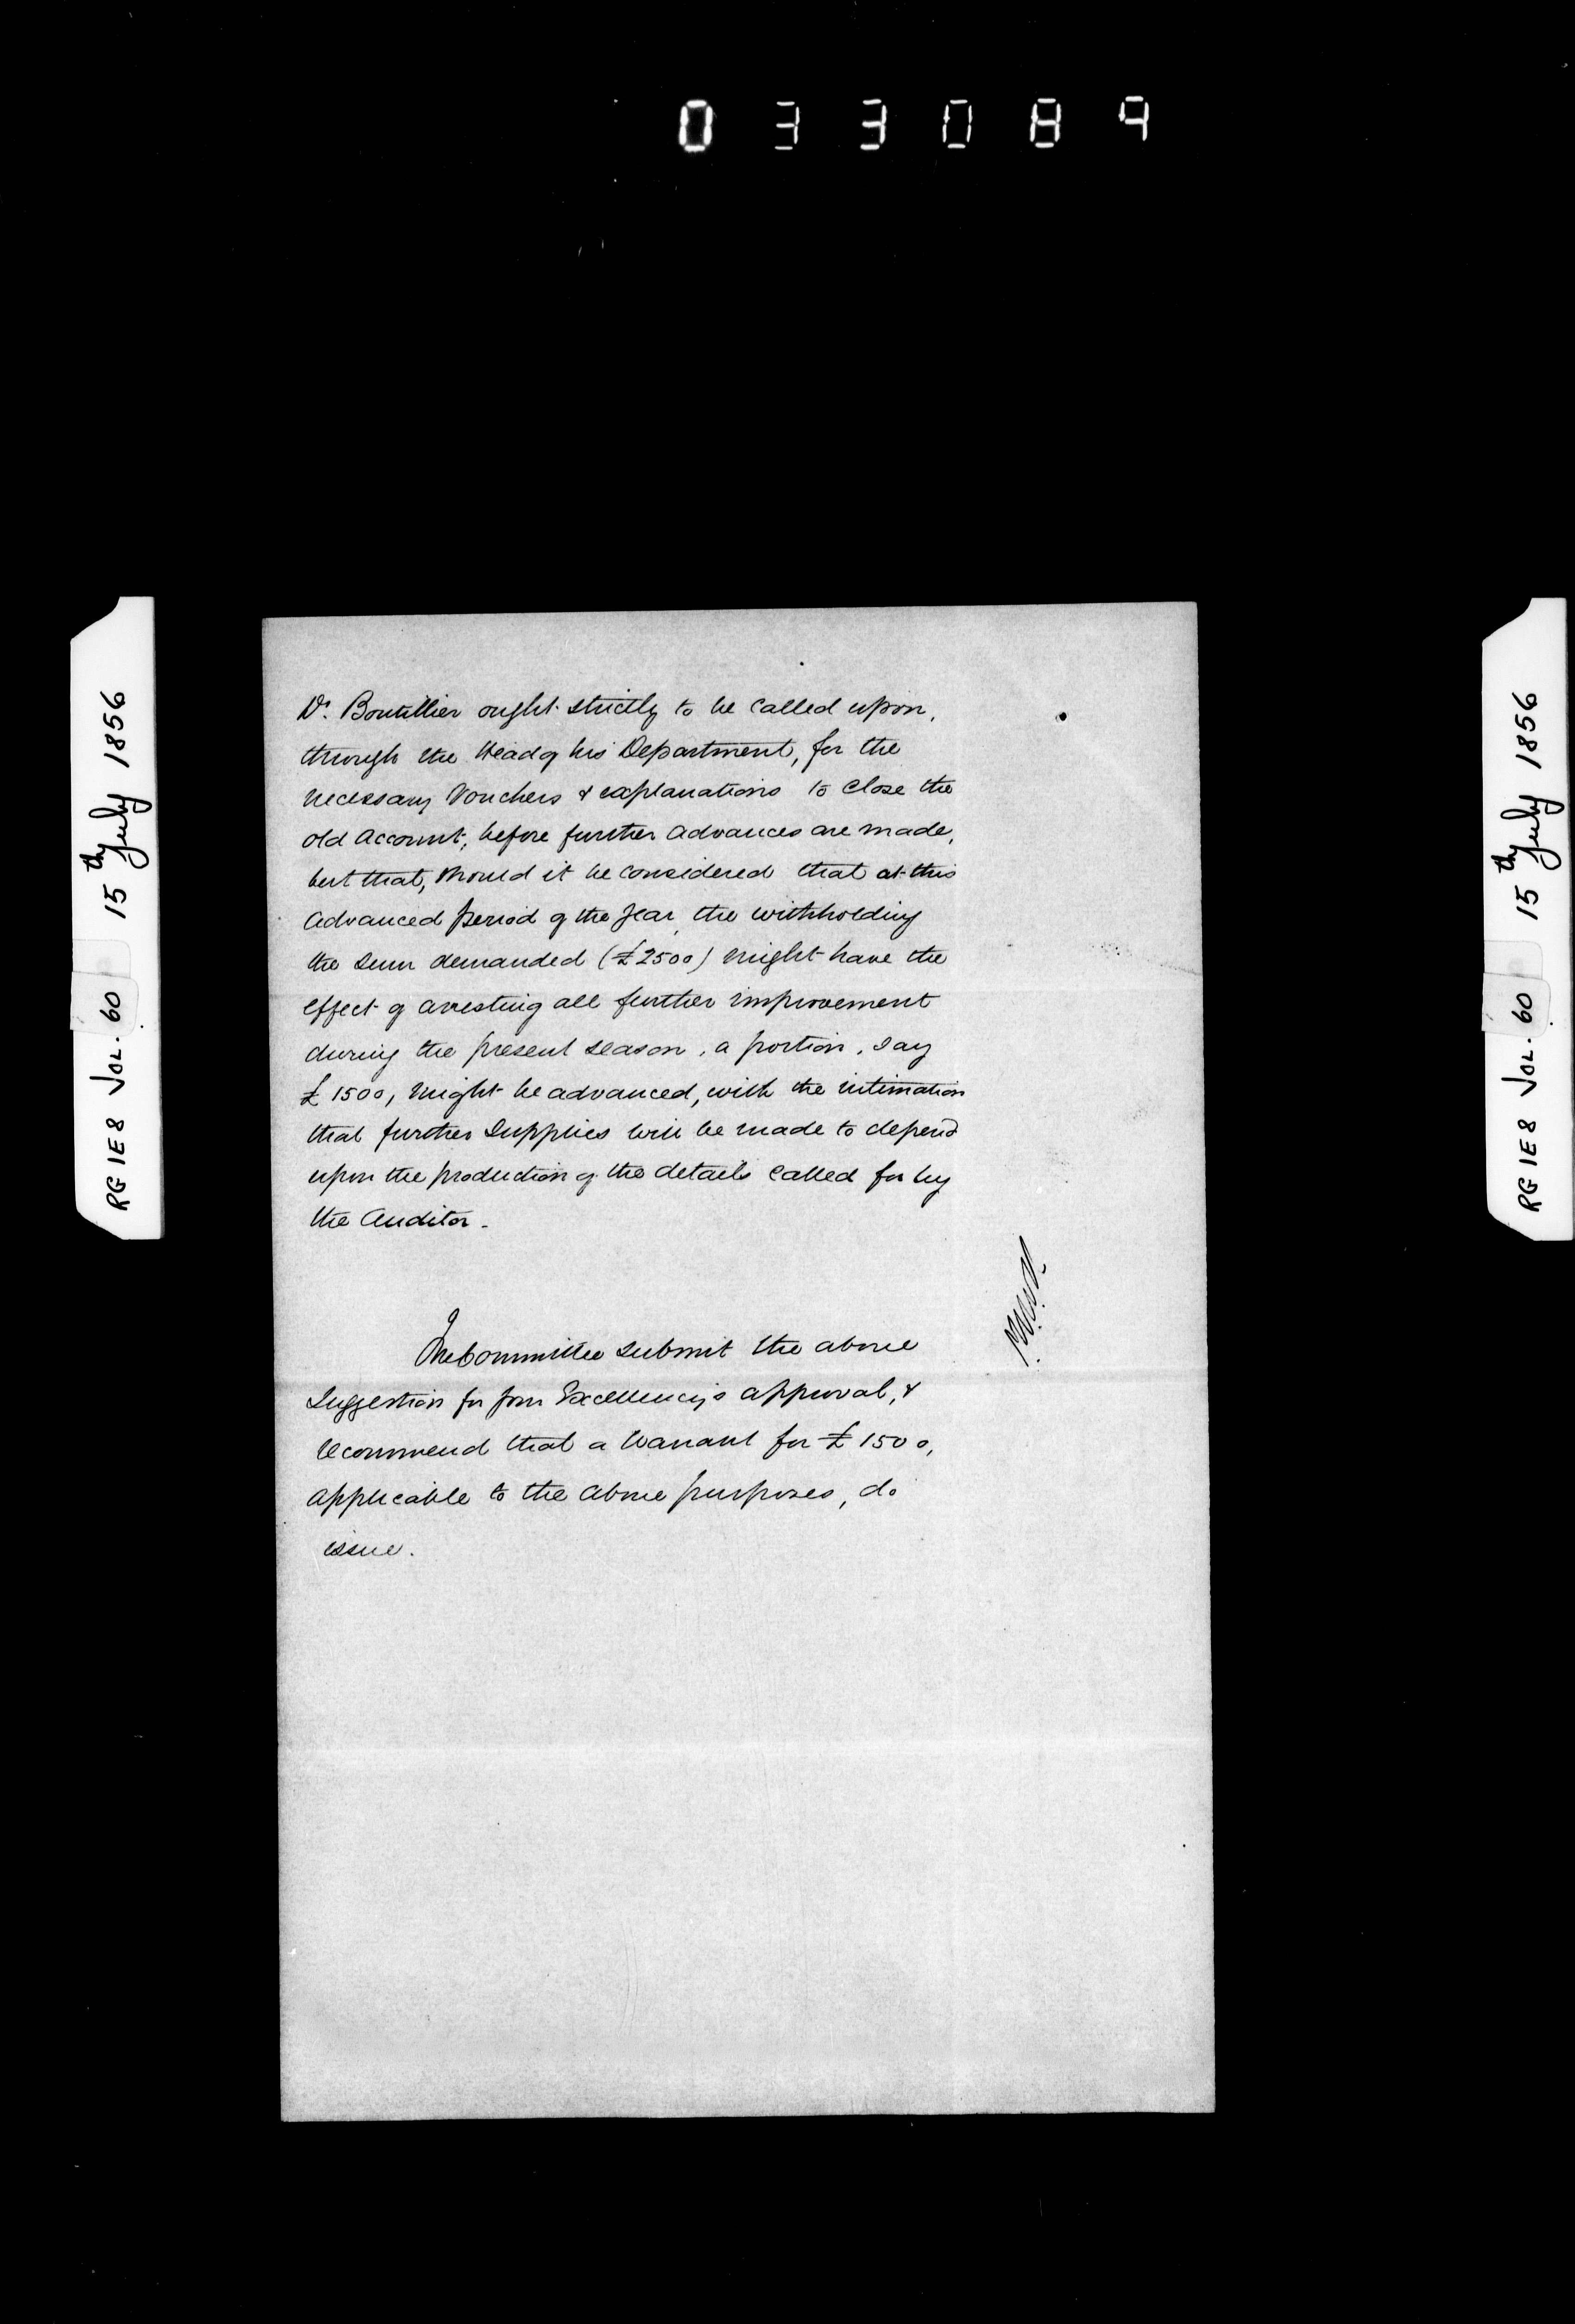 033089
RG 1E8 VOL. 60 15th July 1856
Dr. Boutillier ought strictly to be called upon,
through the Head of his Department, for the
necessary Vouchers & explanations to close the
old Account, before further advances are made,
but that, should it be considered that at this
advanced period of the year, the withholding
the sum demanded (£2500) might have the
effect of arresting all further improvement
during the present season, a portion, say
£1500, might be advanced, with the intimation
that further supplies will be made to depend
upon the production of the details called for by
the Auditor.
The Committee submit the above
suggestion for your Excellency's approval, &
recommend that a Warrant for £1500,
applicable to the above purposes, do
issue.
RG 1E8 VOL. 60 15th July 1856